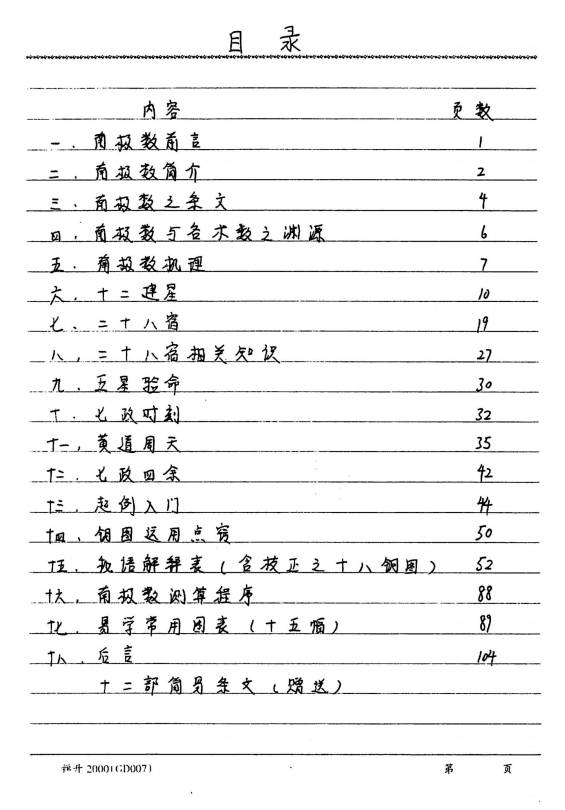 目录
内容 页数
一、南极数前言 1
二、南极数简介 2
三、南极数之条文 4
四、南极数与各术数之渊源 6
五、南极数机理 7
六、十二建星 10
七、二十八宿 19
八、二十八宿相关知识 27
九、五星验命 30
十、七政时刻 32
十一、黄道周天 35
十二、七政四余 42
十三、起例入门 44
十四、钥图运用点窍 50
十五、秘语解释表(含校正之十八钥图) 52
十六、南极数测算程序 88
十七、易学常用图表(十五幅) 89
十八、后言 104
十二部简易条文(赠送)
20001(GD007) 第 页